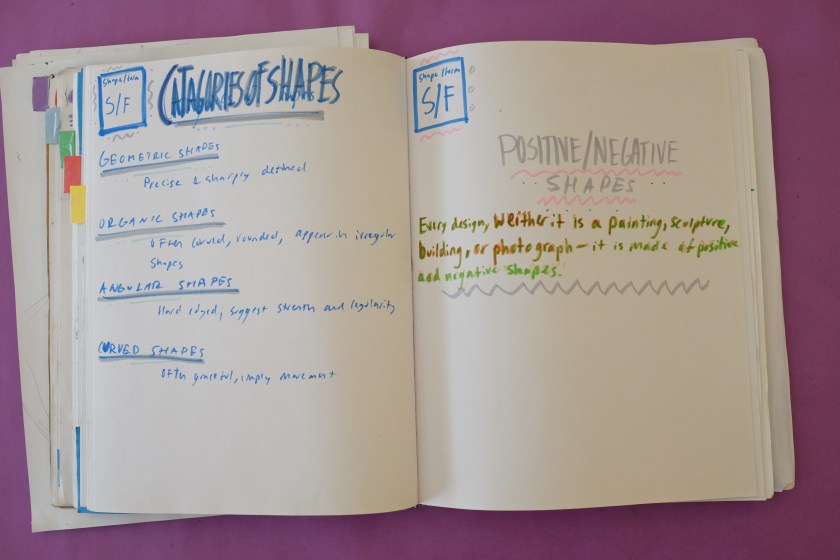 Shape/term
S/F
CATAGORIES OF SHAPES
GEOMETRIC SHAPES
Precise & sharply defined
ORGANIC SHAPES
Often curved, rounded, appear in irregular
shapes
ANGULAR SHAPES
Hard edged, suggest strenth and regularity
CURVED SHAPES
Often graceful, imply movement
Shape/term
S/F
POSITIVE/NEGATIVE
SHAPES
Every design, weither it is a painting, sculpture,
building, or photograph - it is made of positive
and negative shapes.